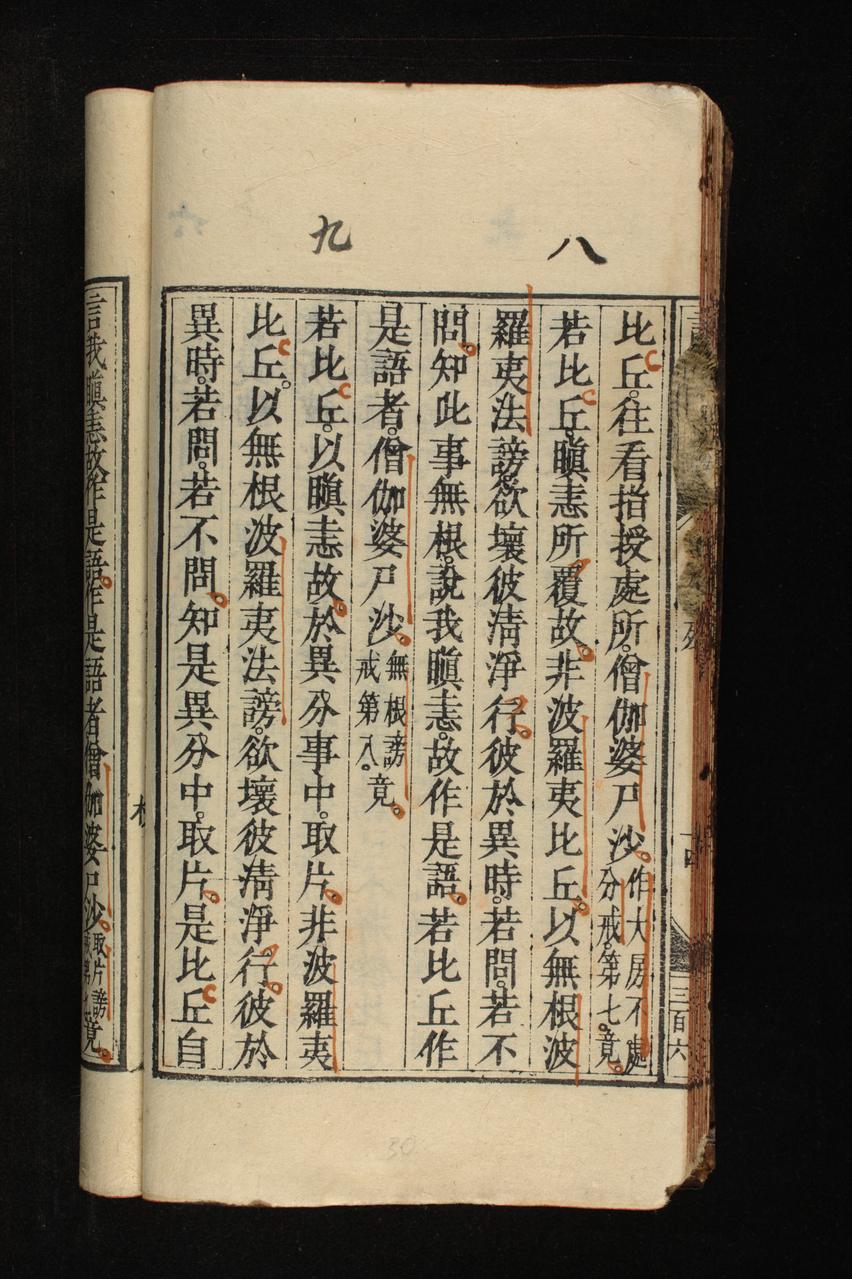 八
九
比丘。往看指授處所。僧伽婆尸沙。作大房不處分戒。第七。竟。
若比丘。瞋恚所覆故。非波羅夷比丘。以無根波
羅夷法謗。欲壞彼清淨行。彼於異時。若問。若不
問。知此事無根。說我瞋恚。故作是語。若比丘作
是語者。僧伽婆尸沙。無根謗戒第八。竟。
若比丘。以瞋恚故。於異分事中。取片。非波羅夷
比丘。以無根波羅夷法謗。欲壞彼清淨行。彼於
異時。若問。若不問。知是異分中。取片。是比丘自
言我瞋恚故。作是語。作是語者。僧伽婆尸沙。取片謗戒第九竟。
三百六
30